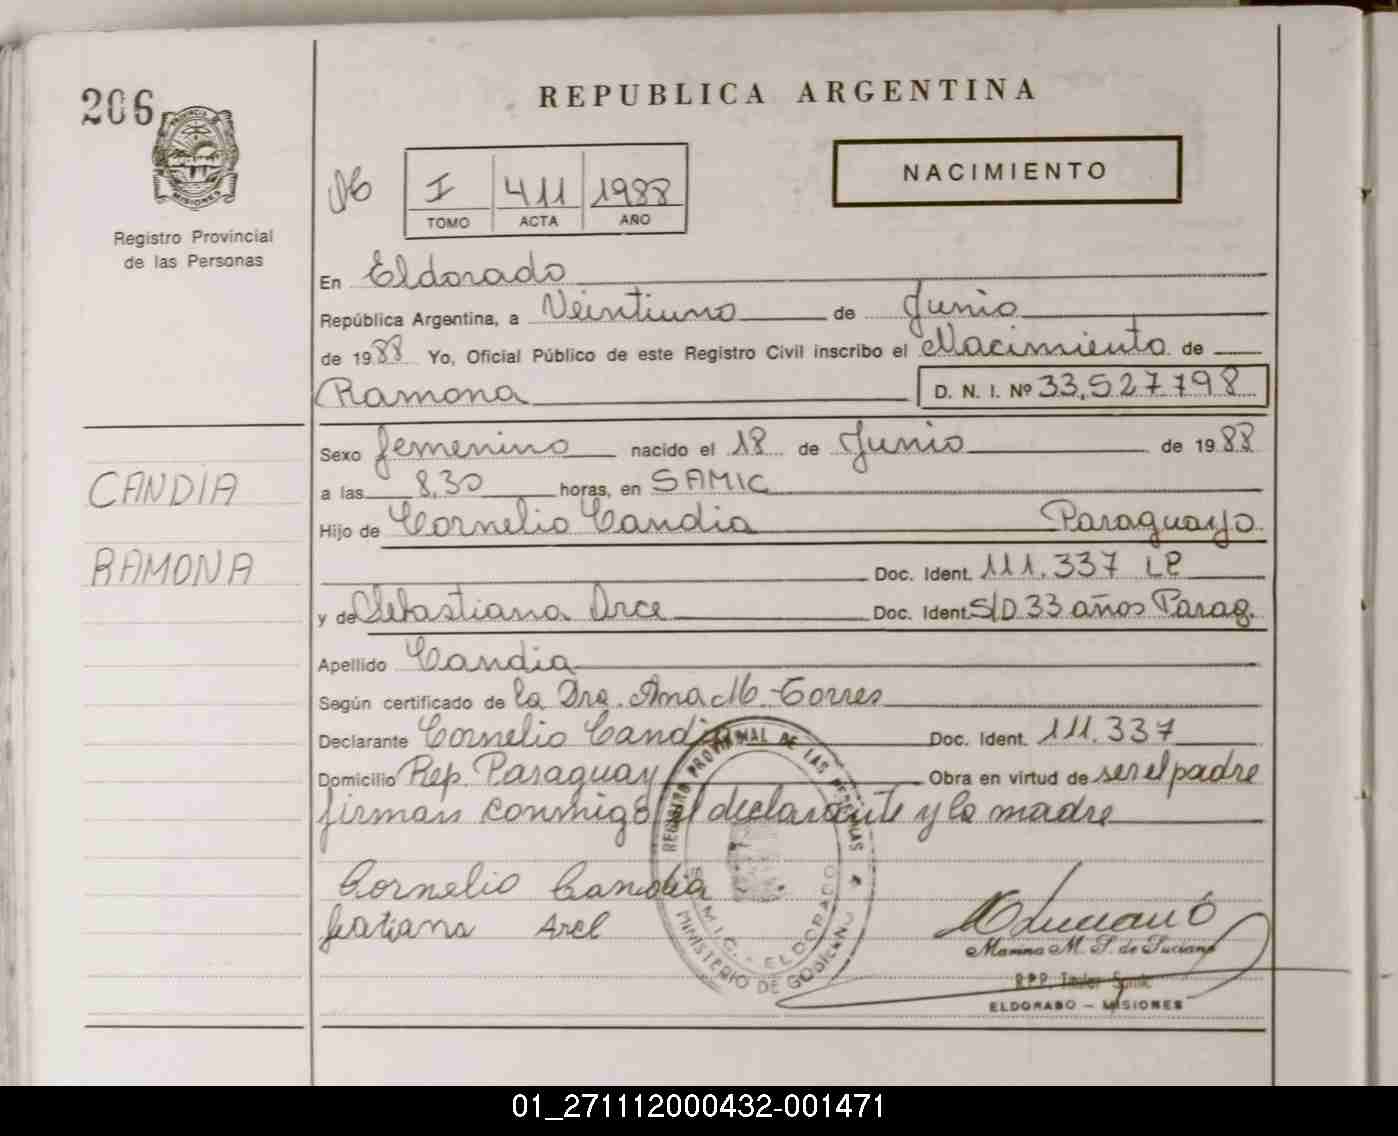 206
REPUBLICA ARGENTINA
NACIMIENTO
I 411 1988
TOMO ACTA AÑO
Registro Provincial
de las Personas
En Eldorado
República Argentina, a Veintiuno de Junio
de 1988 Yo, Oficial Público de este Registro Civil inscribo el Nacimiento de
Ramona D. N. I. Nº 33.527.798
Sexo femenino nacido el 18 de Junio de 1988
CANDIA
a las 8,30 horas, en SAMIC
Hijo de Cornelio Candia Paraguayo
RAMONA
Doc. Ident. 111.337 LP
y de Sebastiana Arce Doc. Ident. S/D 33 años Parag.
Apellido Candia
Según certificado de la Dra. Ana M. Torres
Declarante Cornelio Candia Doc. Ident. 111.337
Domicilio Rep. Paraguay Obra en virtud de ser el padre
firman conmigo el declarante y la madre
Cornelio Candia
REGISTRO PROVINCIAL DE LAS PERSONAS
S.A.M.I.C. - ELDORADO
MINISTERIO DE GOBIERNO
Marina M. S. de Luciano
ELDORADO - MISIONES
01_271112000432-001471